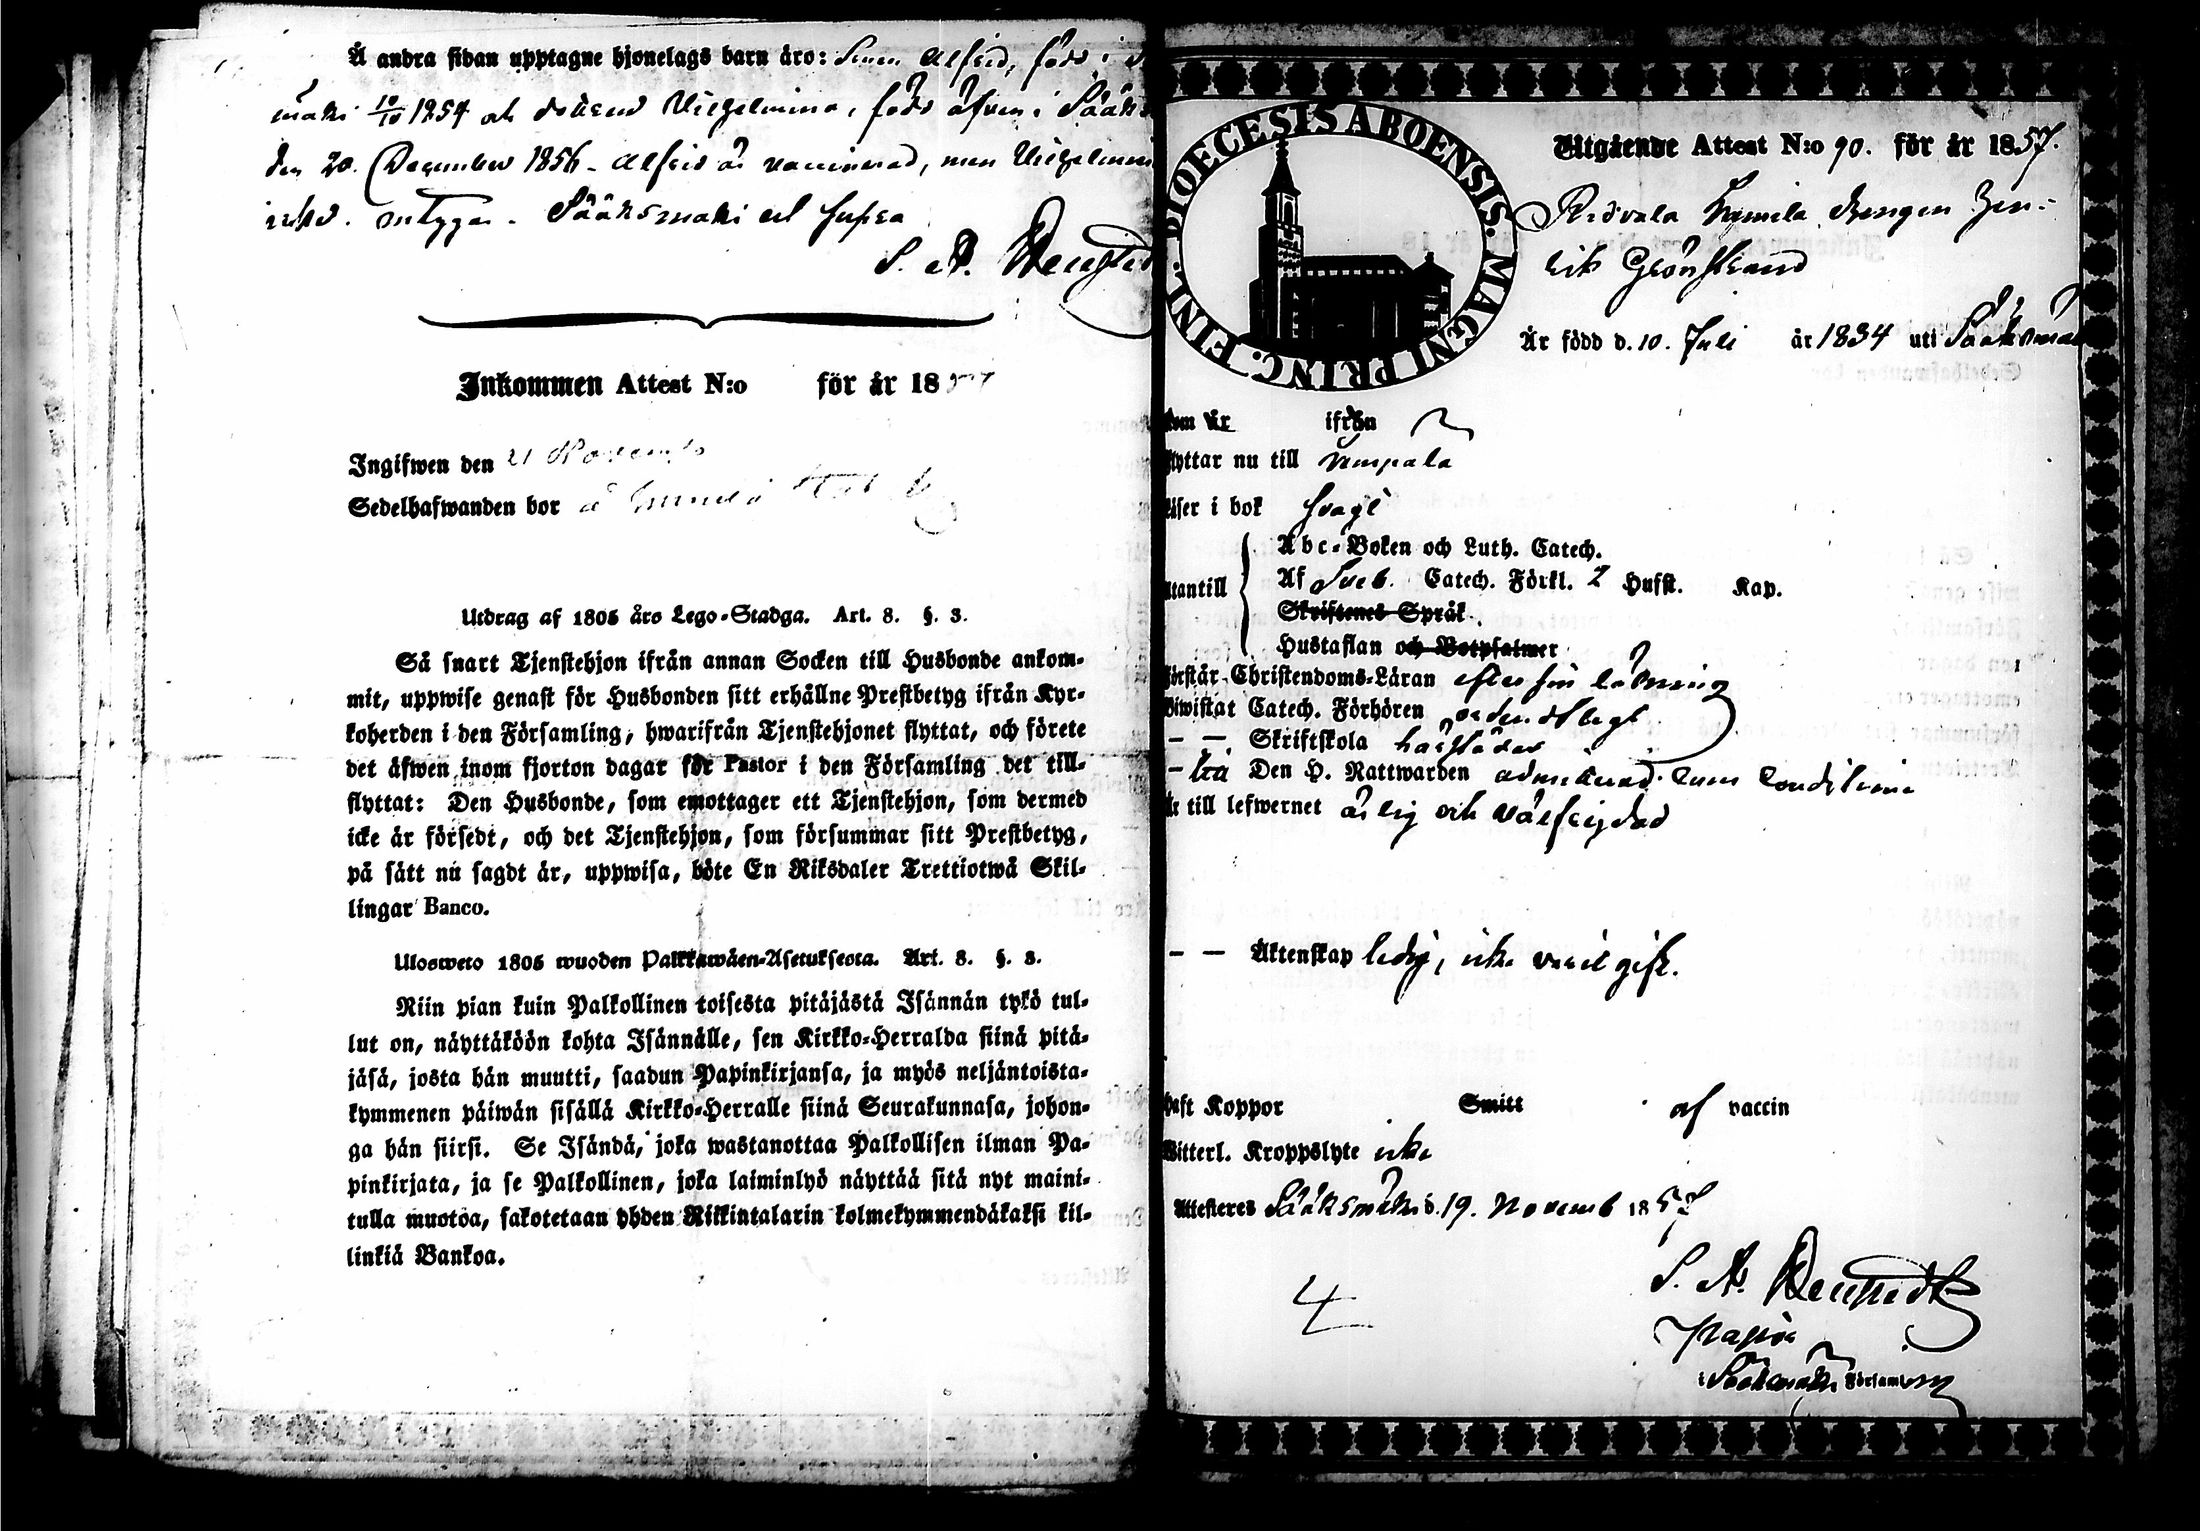 Å andra sidan upptagne hjonelags barn äro: Sonen Alfred, född i
mäki 10/10 1854 och dottren Wilhelmina, född äfven i Sääks
den 20. December 1856 - Alfred är vaccinerad, men Wilhelmin
icke. intygar. Sääksmäki ut supra
S. A.
Inkommen Attest N:o för år 1857
Ingifwen den 21 Novemb
Sedelhafwanden bor å
Utdrag af 1805 års Lego-Stadga. Art. 8. §. 3.
Så snart Tjenstehjon ifrån annan Socken till Husbonde ankom-
mit, uppwise genast för Husbonden sitt erhållne Prestbetyg ifrån Kyr-
koherden i den Församling, hwarifrån Tjenstehjonet flyttat, och förete
det äfwen inom fjorton dagar för Pastor i den Församling det till-
flyttat: Den Husbonde, som emottager ett Tjenstehjon, som dermed
icke är försedt, och det Tjenstehjon, som försummar sitt Prestbetyg,
på sätt nu sagdt är, uppwisa, böte En Riksdaler Trettiotwå Skil-
lingar Banco.
Ulosweto 1805 wuoden Palkkawäen-Asetuksesta. Art. 8. §. 3.
Niin pian kuin Palkollinen toisesta pitäjästä Isännän tykö tul-
lut on, näyttäköön kohta Isännälle, sen Kirkko-Herralda siinä pitä-
jäsä, josta hän muutti, saadun Papinkirjansa, ja myös neljäntoista-
kymmenen päiwän sisällä Kirkko-Herralle siinä Seurakunnasa, johon-
ga hän siirsi. Se Isändä, joka wastanottaa Palkollisen ilman Pa-
pinkirjata, ja se Palkollinen, joka laiminlyö näyttää sitä nyt maini-
tulla muotoa, sakotetaan yhden Riikintalarin kolmekymmendäkaksi kil-
linkiä Bankoa.
DIOECESIS ABOENSIS. MAGNI PRINC. FINL.
Utgående Attest N:o 90. för år 1857.
Ridvala Drengen Hen-
rik Grönstrand
Är född d. 10. Juli år 1834 uti Sääksmäki
kom år ifrån
flyttar nu till Lempälä
läser i bok svagt
utantill
Abc-Boken och Luth. Catech.
Af Sveb. Catech. Förkl. 2 Hufst. Kap.
Skriftenes Språk.
Hustaflan och Botpsalmer
förstår Christendoms-Läran efter sin läsning
Biwistat Catech. Förhören ordentligt
— — Skriftskola
— till Den H. Nattwarden admitterad cum conditione
är till lefwernet ärlig och välfrejdad
— — Äktenskap ledig, icke varit gift.
haft Koppor Smitt af vaccin
Witterl. Kroppslyte icke
Attesteres Sääksmäki d. 19. Novemb 1857
S. A.
4
i Sääksmäki Församling